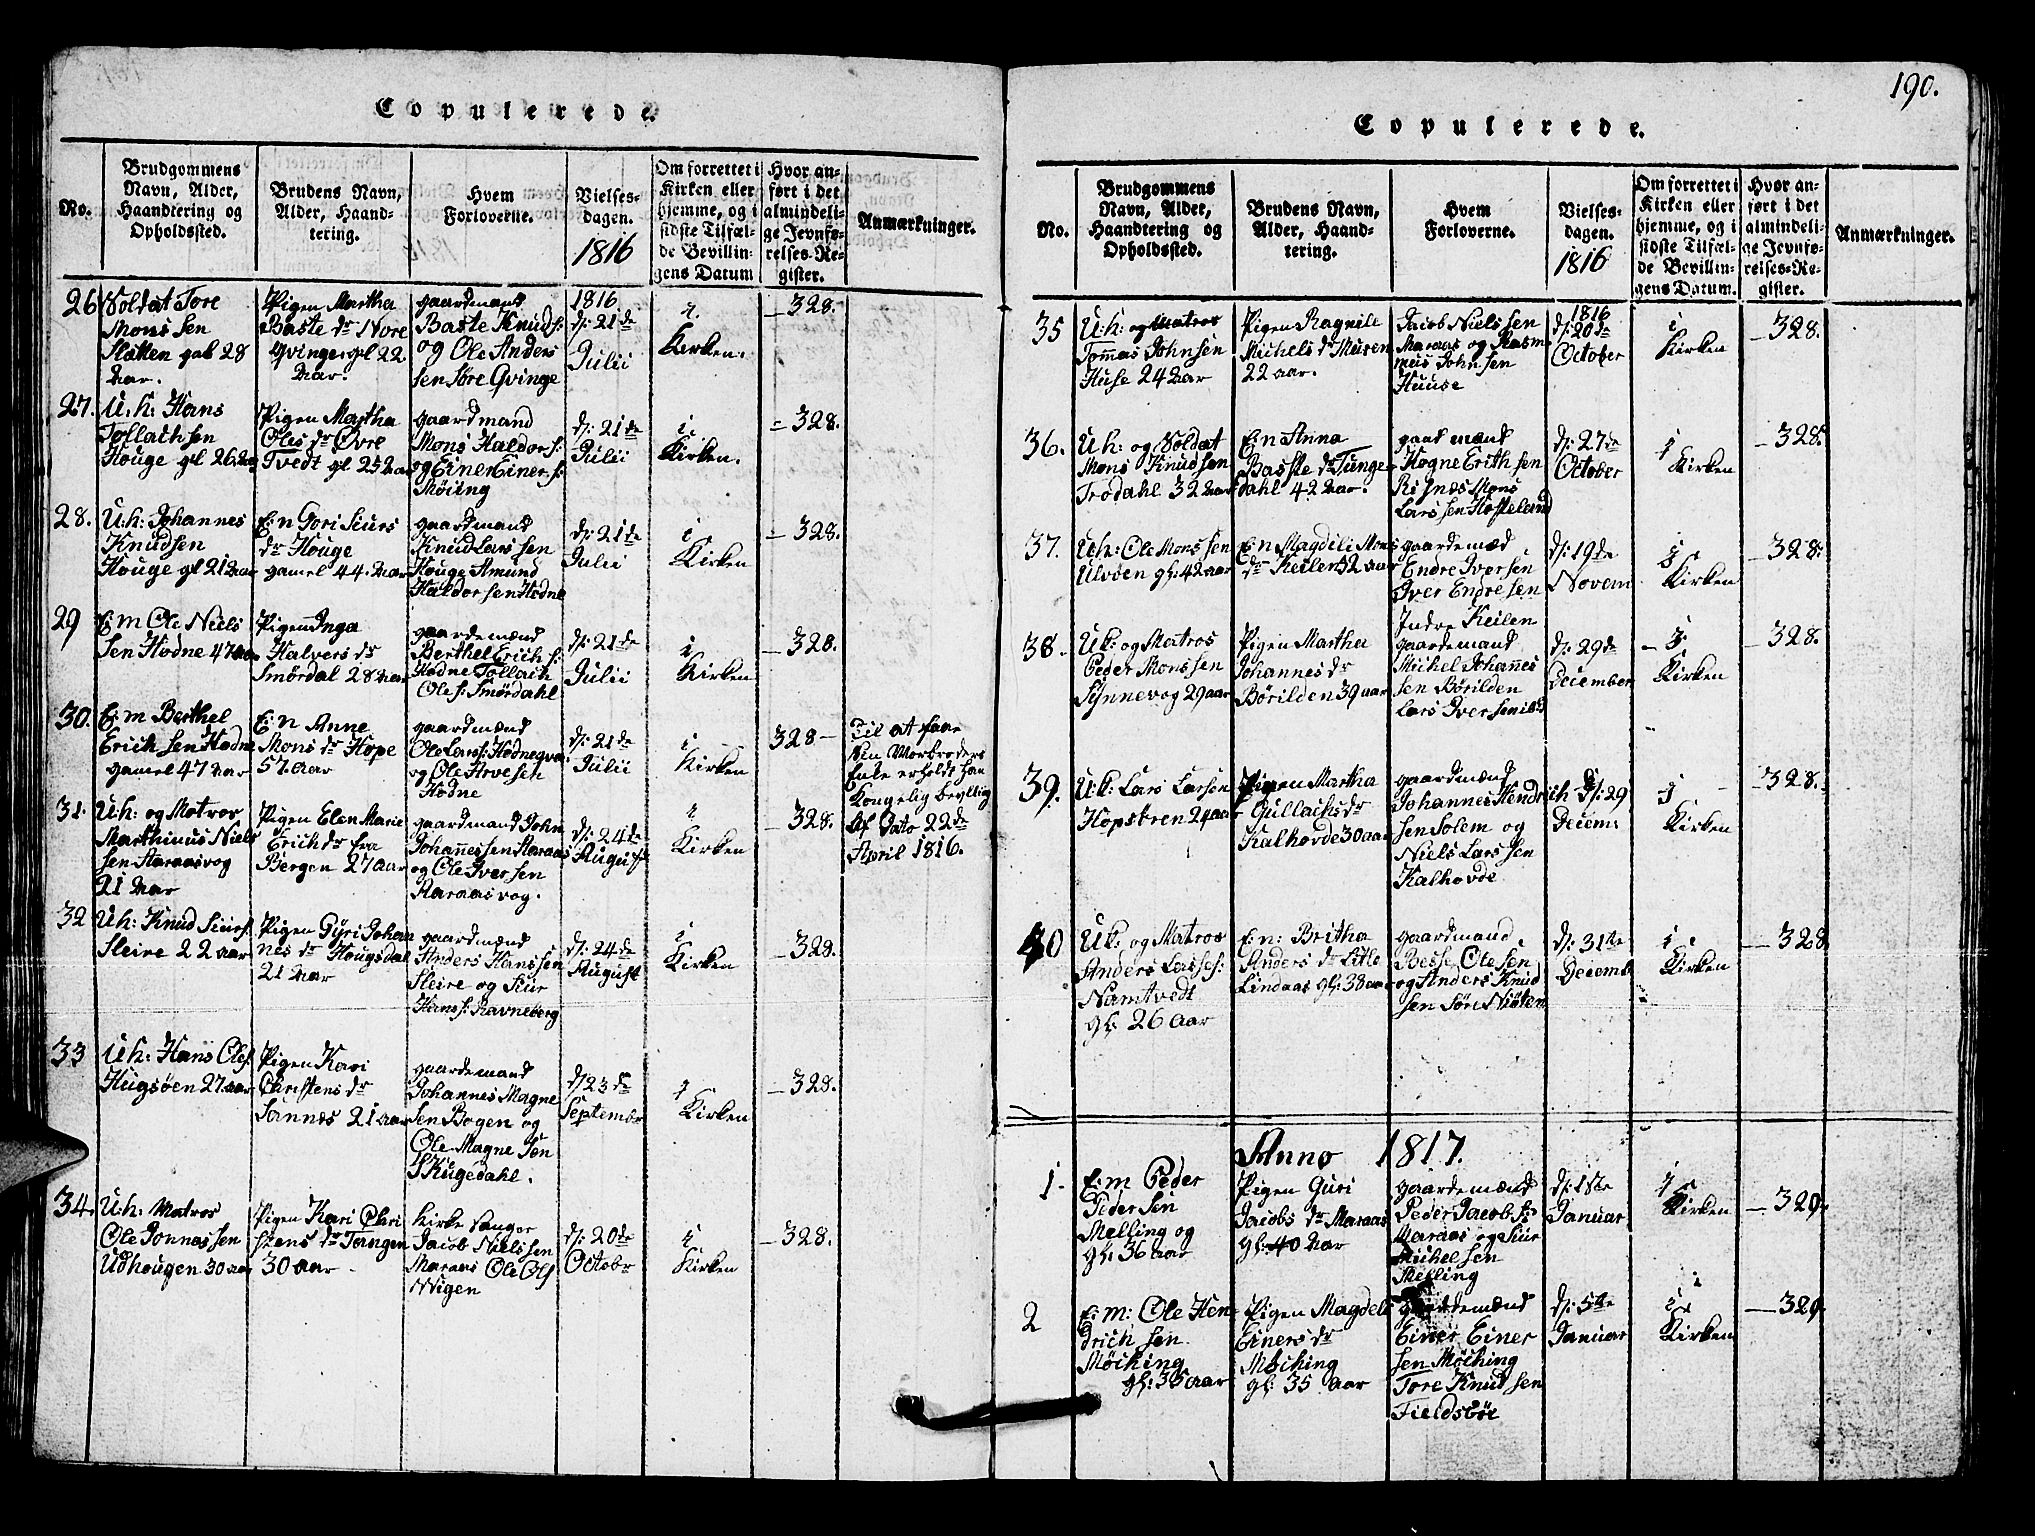 190.
Copulerede.
No.
Brudgommens
Navn, Alder,
Haandtering og
Opholdssted.
Brudens Navn,
Alder, Haand-
tering.
Hvem
Forloverne.
Vielses-
dagen.
1816
Om forrettet i
Kirken eller
hjemme, og i
sidste Tilfæl-
de Bevillin-
gens Datum
Hvor an-
ført i det
almindeli-
ge Jevnfø-
relses-Re-
gister.
Anmærkninger.
26
Soldat Tore
Mons Sen
gal 28
Aar.
Pigen Martha
Baste dr Nore
Qvinge gl 22
Aar.
gaardmand
Baste Knuds:
og Ole Anders
sen Søre Qvinge
1816
d: 21de
Julii
i
Kirken.
328.
27.
U. h: Hans
Tollach sen
Houge gl 26 Aar
Pigen Martha
Oles dr Øvre
Tvedt gl 25 Aar
gaardmand
Mons Haldors:
og Einer Einers:
d: 21de
Julii
i
Kirken.
328.
28.
U: h: Johannes
Knudsen
Houge gl 21 Aar
E: n Gori Siurs
dr Houge
gamel 44 Aar
gaardmand
Knud Lars sen
Houge Amund
Haldorsen Hodne
d: 21de
Julii
i
Kirken
328.
29
E: m Ole Niels
Sen Hodne 47 Aar
Pigen Inga
Halvers dr
Smördal 28 Aar
gaardemænd
Berthel Erich s:
Hodne Tollach
Ole s: Smördahl
d: 21de
Julii
i
Kirken
328.
30.
E: m Berthel
Erich sen Hodne
gamel 47 Aar
E: n Anne
Mons dr Hope
57 Aar
gaardmænd
Ole Lars:
og Ole
Hodne
d: 21de
Julii
i
Kirken
328
Til at faae
Sin Morbroders
Enke erholdt han
Kongelig bevllig
Af Dato 22de
April 1816.
31.
U: h: og Matros
Marthinus Niels
sen Araasvog
21 Aar
Pigen Elen Marie
Erich dr fra
Bergen 27 aar
gaardmand John
Johannessen Araas
og Ole Iversen
Araasvog.
d: 24de
August
i
Kirken
328.
32
U: h: Knud Siurs:
Sleire 22 aar
Pigen Gyri Johan
nes dr Hougsdal
21 Aar
gaardmænd
Anders Hanssen
Sleire og Siur
Hans s: Ravneberg
d: 24de
August
i
Kirken
328.
33
U h: Hans Oles:
Hugsøen 27 aar
Pigen Kari
Christens dr
Sannæs 21 Aar
gaardemand
Johannes Magne
Sen Bogen og
Ole Magne Søn
d: 23de
Septembr
i
Kirken
328.
34.
U: h: Matros
Ole Jonnas sen
Udhougen 30 aar
Pigen Kari Chri
stens dr Tangen
30 aar
Kirke sanger
Jacob Niels sen
Maraas Ole Ols
d: 20de
Octobr
i
Kirken
328.
Copulerede.
No.
Brudgommens
Navn, Alder,
Haandtering og
Opholdssted.
Brudens Navn,
Alder, Haand-
tering.
Hvem
Forloverne.
Vielses-
dagen.
1816
Om forrettet i
Kirken eller
hjemme, og i
sidste Tilfæl-
de Bevillin-
gens Datum.
Hvor an-
ført i det
almindeli-
ge Jevnfø-
relses-Re-
gister.
Anmærkninger.
35
U: h: og Matros
Tommas Johnsen
Huse 24 Aar
Pigen Ragnile
Michels dr
22 aar.
Jacob Niels sen
Maraas og Rasm
mus John sen
Huuse
1816
d: 20de
October
i
Kirken
328.
36.
U: h: og Soldat
Mons Knudsen
Trodahl 32 Aar
E: n Anna
Basste dr Tunge
dahl 42 Aar.
gaad mænd
Hogne Erith sen
Risnæs Mons
Lars sen Hosteland
d: 27de
October
i
Kirken
328.
37.
U: h: Ole Mons sen
Ulvøen gl: 42 aar
E: n Magdeli Mons
dr Keilen 32 aar
gaardemæd
Endre Iversen
Iver Endresen
Indre Keilen
d: 19de
Novem
i
Kirken
328.
38.
U h: og Matros
Peder Monssen
Synnevog 29 aar
Pigen Martha
Johannes dr
Börilden 39 aar
gaardemand
Michel Johannes
sen Börilden
Lars Iversen ibd
d: 29de
December
i
Kirken
328.
39.
U: h: Lars Larsen
Hopstren 24 aar
Pigen Martha
Gullachs dr
Kalhovde 30 aar
gaardmænd
Johannes Hendrich
sen Solem og
Niels Lars sen
Kalhovde
d: 29
Decem:
i
Kirken
328.
40
U h: og Matros
Anders Lasse s:
Namtvedt
gl: 26 Aar
E: n: Britha
Anders dr Litle
Lindaas gl: 38 aar
gaardmand
Besse Ole sen
og Anders Knud
sen Søre
d: 31te
Decemb
i
Kirken
328
Anno 1817.
1.
E: m Peder
Peder sen
Melling og
gl: 36 aar
Pigen Guri
Jacobs dr Maraas
gl: 40 Aar
gaardemænd
Peder Jacob s:
Maraas og Siur
Michel sen
Melling
d: 1ste
Januar
i
Kirken
329.
2
E: m: Ole Hen
drich sen
Möcking
gl: 35 aar
Pigen Magdeli
Einers dr
Möcking
gl: 35 Aar
gaardemænd
Einer Einer
sen Möching
Tore Knud sen
Fieldsbøe
d: 5te
Januar
i
Kirken
329.